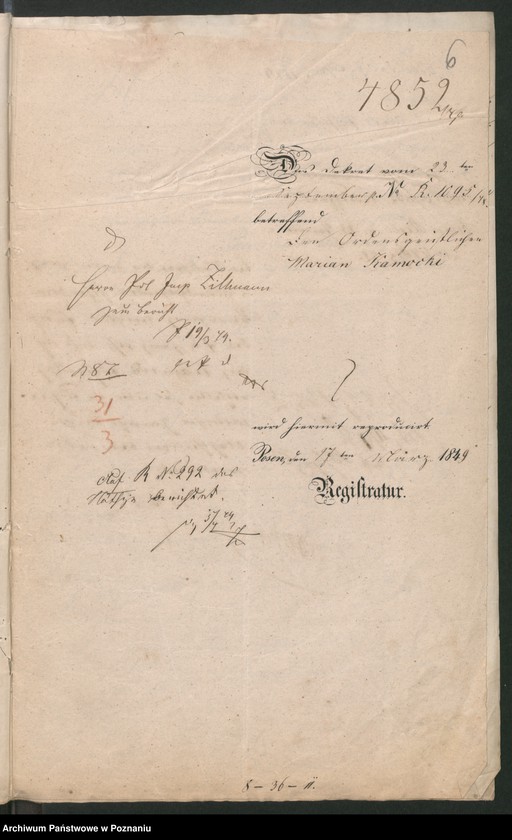 6
4852
Das Dekret vom 23 ten
September N R. 1095/
betreffend
den Ordensgeistlichen
Marian Kamocki
Herrn Pol. Insp. Zillmann
zum Bericht
19/3 49.
31
3
wird hiermit reproducirt
Posen, den 17 ten März 1849
Registratur.
Auf R No. 292 das
Nöthige berichtet.
8 – 36 – II.
Archiwum Państwowe w Poznaniu